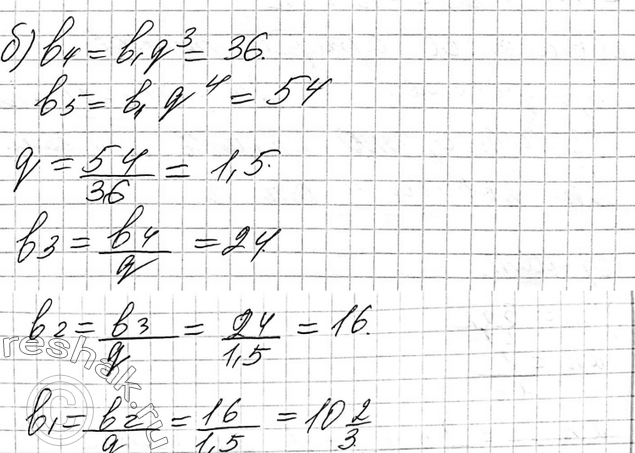 б) b₄ = b₁q³ = 36.
b₅ = b₁q⁴ = 54
q = 54/36 = 1,5.
b₃ = b₄/q = 24.
b₂ = b₃/q = 24/1,5 = 16.
b₁ = b₂/q = 16/1,5 = 10 2/3
reshak.ru